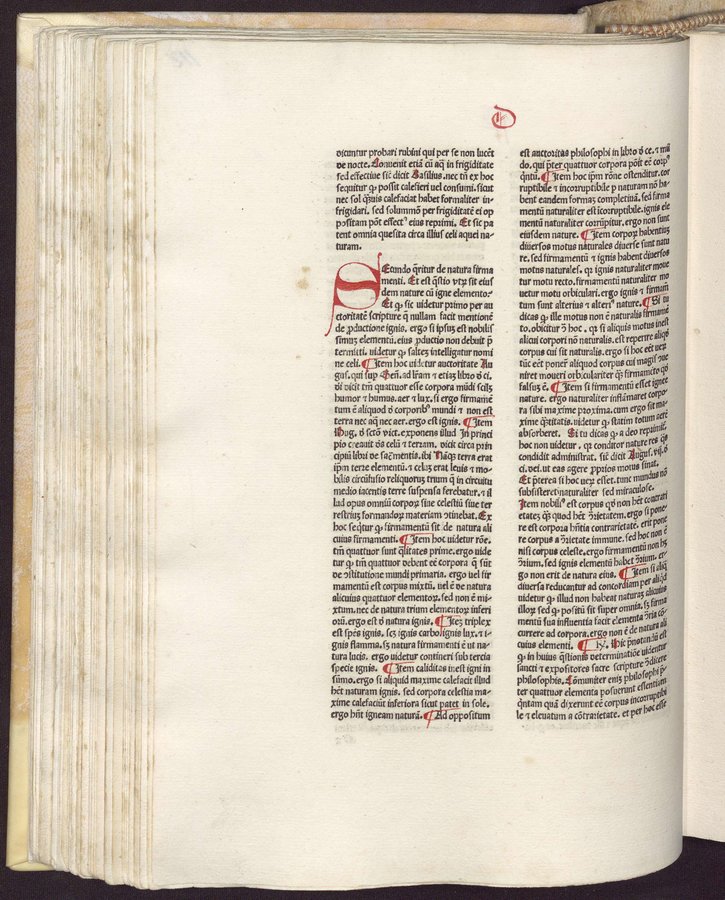 D
dicuntur probari rubini qui per se non lucẽt
de nocte. Conuenit etiã cũ aq̃ in frigiditate
sed effectiue sic̃ dicit Basilius. nec tñ ex hoc
sequitur ꝙ possit calefieri uel consumi. sicut
nec sol q̃uis calefaciat habet formaliter in-
frigidari. sed solummõ per frigiditatẽ ei op
positam põt effectꝰ eius reprimi. Et sic pa
tent omnia quesita circa illius celi aquei na-
turam.
SEcundo q̃ritur de natura firma
menti. Et est q̃stio vtꝝ sit eius
dem nature cũ igne elemento.
Et ꝙ sic uidetur primo per au
ctoritatẽ scripture q̃ nullam facit mentionẽ
de ꝓductione ignis. ergo si ipsuꝫ est nobilis
simuꝫ elementũ. eius ꝓductio non debuit p̃
termitti. uidetur ꝙ salteꝫ intelligatur nomi
ne celi. ¶ Item hoc uidetur auctoritate Au
gus. qui sup Geñ. ad lr̃am ⁊ etiaꝫ libro
dicit tm̃ quattuor esse corpora mũdi scilꝫ
humor ⁊ humus. aer ⁊ lux. si ergo firmamẽ
tum ẽ aliquod õ corporibꝰ mundi ⁊ non est
terra nec aq̃ nec aer. ergo est ignis. ¶ Item
Hug. õ sctõ vict. exponens illud In princi
pio creauit ds̃ celũ ⁊ terram. dicit circa prin
cipiũ libri de sac̃mentis. ibi Nãqꝫ terra erat
ip̃m terre elementũ. ⁊ celuꝫ erat leuis ⁊ mo-
bilis circũfusio reliquoruꝫ trium q̃ in circuitu
medio iacentis terre suspensa ferebatur. ⁊ il
lud opus omniũ corporꝝ siue celestiũ siue ter
restriuꝫ formandoꝝ materiam ↄtinebat. Ex
hoc seq̃tur ꝙ firmamentũ sit de natura ali
cuius firmamenti. ¶ Item hoc uidetur rõe.
tm̃ quattuor sunt q̃litates prime. ergo uide
tur ꝙ tm̃ quattuor debent eẽ corpora q̃ sũt
de ↄstitutione mundi primaria. ergo uel fir
mamentũ est corpus mixtũ. uel ẽ de natura
alicuius quattuor elementoꝝ. sed non ẽ mi-
xtum. nec de natura trium elementoꝝ inferi
oꝝ. ergo est õ natura ignis. ¶ Iteꝫ triplex
est spẽs ignis. scꝫ ignis carbo ignis lux. ⁊ i-
gnis flamma. sꝫ natura firmamenti ẽ ut na-
tura lucis. ergo uidetur contineri sub tercia
specie ignis. ¶ Item caliditas inest igni in
sũmo. ergo si aliquid maxime calefacit illud
hẽt naturam ignis. sed corpora celestia ma-
xime calefaciũt inferiora sicut patet in sole.
ergo hñt igneam naturã. ¶ Ad oppositum
est auctoritas philosophi in libro õ ce. ⁊ mũ
do. qui p̃ter quattuor corpora põit eẽ corpꝰ
q̃ntũ. ¶ Item hoc ip̃m rõne ostenditur. cor
ruptibile ⁊ incorruptibile ꝑ naturam nõ ha-
bent eandem formaꝫ completiuã. sed firma
mentũ naturaliter est icorruptibile. ignis ele
mentũ naturaliter corrũpitur. ergo non sunt
eiusdem nature. ¶ Item corporꝝ habentiuꝫ
diuersos motus naturales diuerse sunt natu
re. sed firmamentũ ⁊ ignis habent diuersos
motus naturales. qꝛ ignis naturaliter moue
tur motu recto. firmamentũ naturaliter mo
uetur motu orbiculari. ergo ignis ⁊ firmam̃
tum sunt alterius ⁊ alteriꝰ nature. ¶ Si tu
dicas ꝙ ille motus non ẽ naturalis firmamẽ
to. obicitur ↄ̃ hoc. qꝛ si aliquis motus inest
alicui corpori nõ naturalis. est reperire aliqḋ
corpus cui sit naturalis. ergo si hoc eẽt ueꝝ
tũc eẽt ponere aliquod corpus cui magis ↄue
niret moueri orbiculariter q̃ firmamẽto qḋ
falsuꝫ ẽ. ¶ Item si firmamentũ esset ignee
nature. ergo naturaliter inflãmaret corpo-
ra sibi maxime proxima. cum ergo sit ma-
xime q̃titatis. uidetur ꝙ statim totum aerẽ
absorberet. Si tu dicas ꝙ a deo reprimit̃.
hoc non uidetur. qꝛ conditor nature res q̃s
condidit administrat. sic̃ dicit Augus. vij. õ
ci. dei. ut eas agere ꝓprios motus sinat.
Et p̃terea si hoc ueꝝ esset. tunc mundus nõ
subsisteret naturaliter sed miraculose.
Item nobiliꝰ est corpus qḋ non hẽt contrari
etateꝫ q̃ꝫ quod hẽt ↄ̃rietatem. ergo si pone-
re est corpora hñtia contrarietatẽ. erit pone
re corpus a ↄ̃rietate immune. sed hoc non ẽ
nisi corpus celeste. ergo firmamentũ non hꝫ
ↄ̃rium. sed ignis elementũ habet ↄ̃rium. er-
go non erit de natura eius. ¶ Item si aliq̃
diuersa reducantur ad concordiam per aliqḋ
uidetur ꝙ illud non habeat naturaꝫ alicuius
illoꝝ sed ꝙ positũ sit super omnia. sꝫ firma
mentũ sua influentia facit elementa ↄ̃ria cõ-
currere ad corpora. ergo non ẽ de natura ali
cuius elementi. ¶ IX. Hic p̃notandũ est
ꝙ in huius q̃stionis determinatiõe uidentur
sancti ⁊ expositores sacre scripture ↄ̃dicere
philosophis. Cõmuniter eniꝫ philosophi p̃-
ter quattuor elementa posuerunt essentiam
q̃ntam quã dixerunt eẽ corpus incorruptibi
le ⁊ eleuatum a cõtrarietate. et per hoc esse